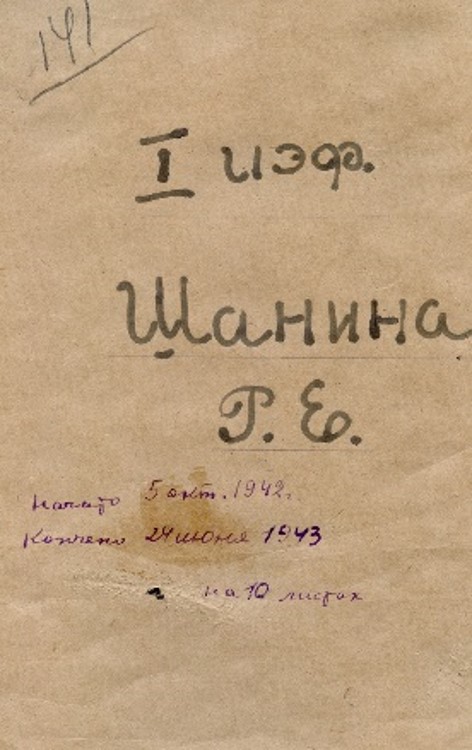 141
I иэф.
Шанина
Р. Е.
Начато 5 окт. 1942г.
Кончено 24 июня 1943
на 10 листах